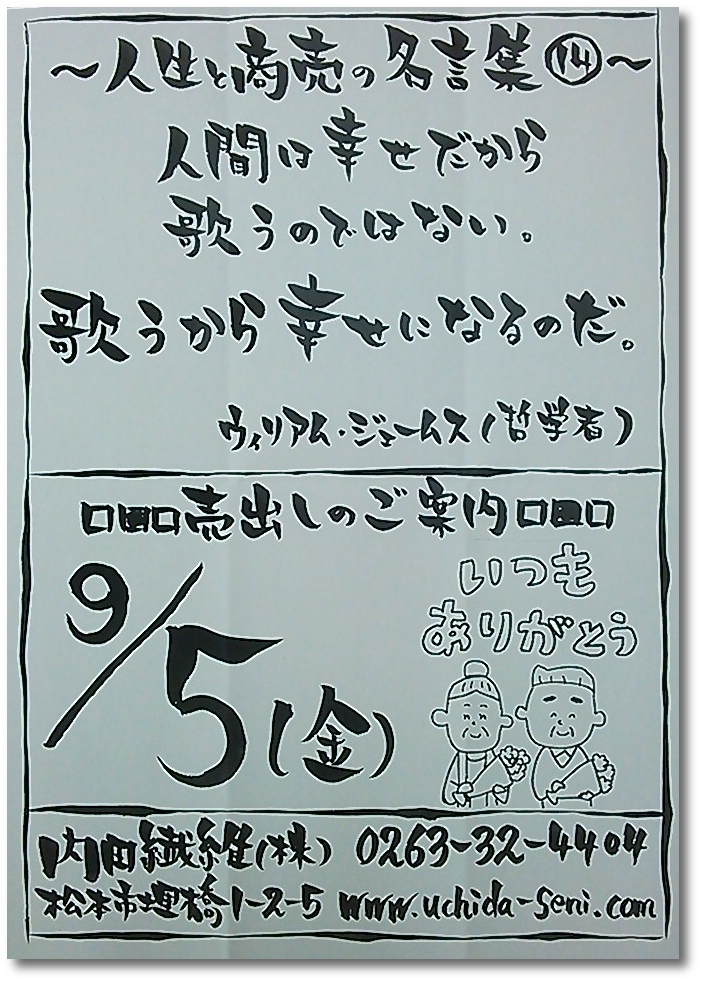 ～人生と商売の名言集⑭～
人間は幸せだから
歌うのではない。
歌うから幸せになるのだ。
ウィリアム・ジェームス(哲学者)
売出しのご案内
9/5(金)
いつも
ありがとう
内田繊維(株) 0263-32-4404
松本市埋橋1-2-5 www.uchida-seni.com